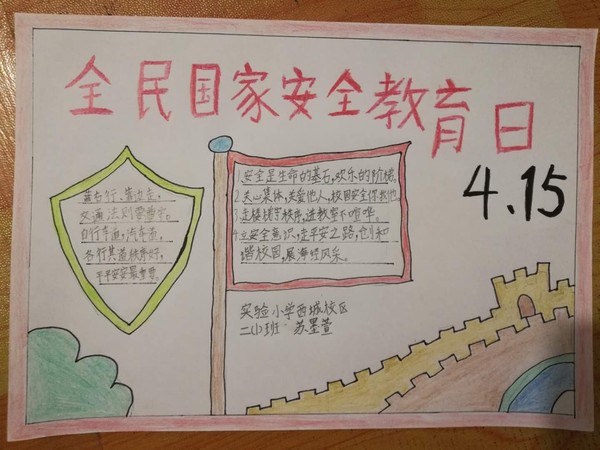 全民国家安全教育日
4.15
靠右行,靠边走,
交通法则要遵守。
自行车道,汽车道,
各行其道秩序好,
平平安安最重要。
1.安全是生命的基石,欢乐的阶梯
2.关心集体,关爱他人,校园安全你我他
3.走楼梯守秩序,进教室不喧哗。
4.立安全意识,走平安之路,创和
谐校园,展海经风采。
实验小学西城校区
二(1)班 苏墨萱